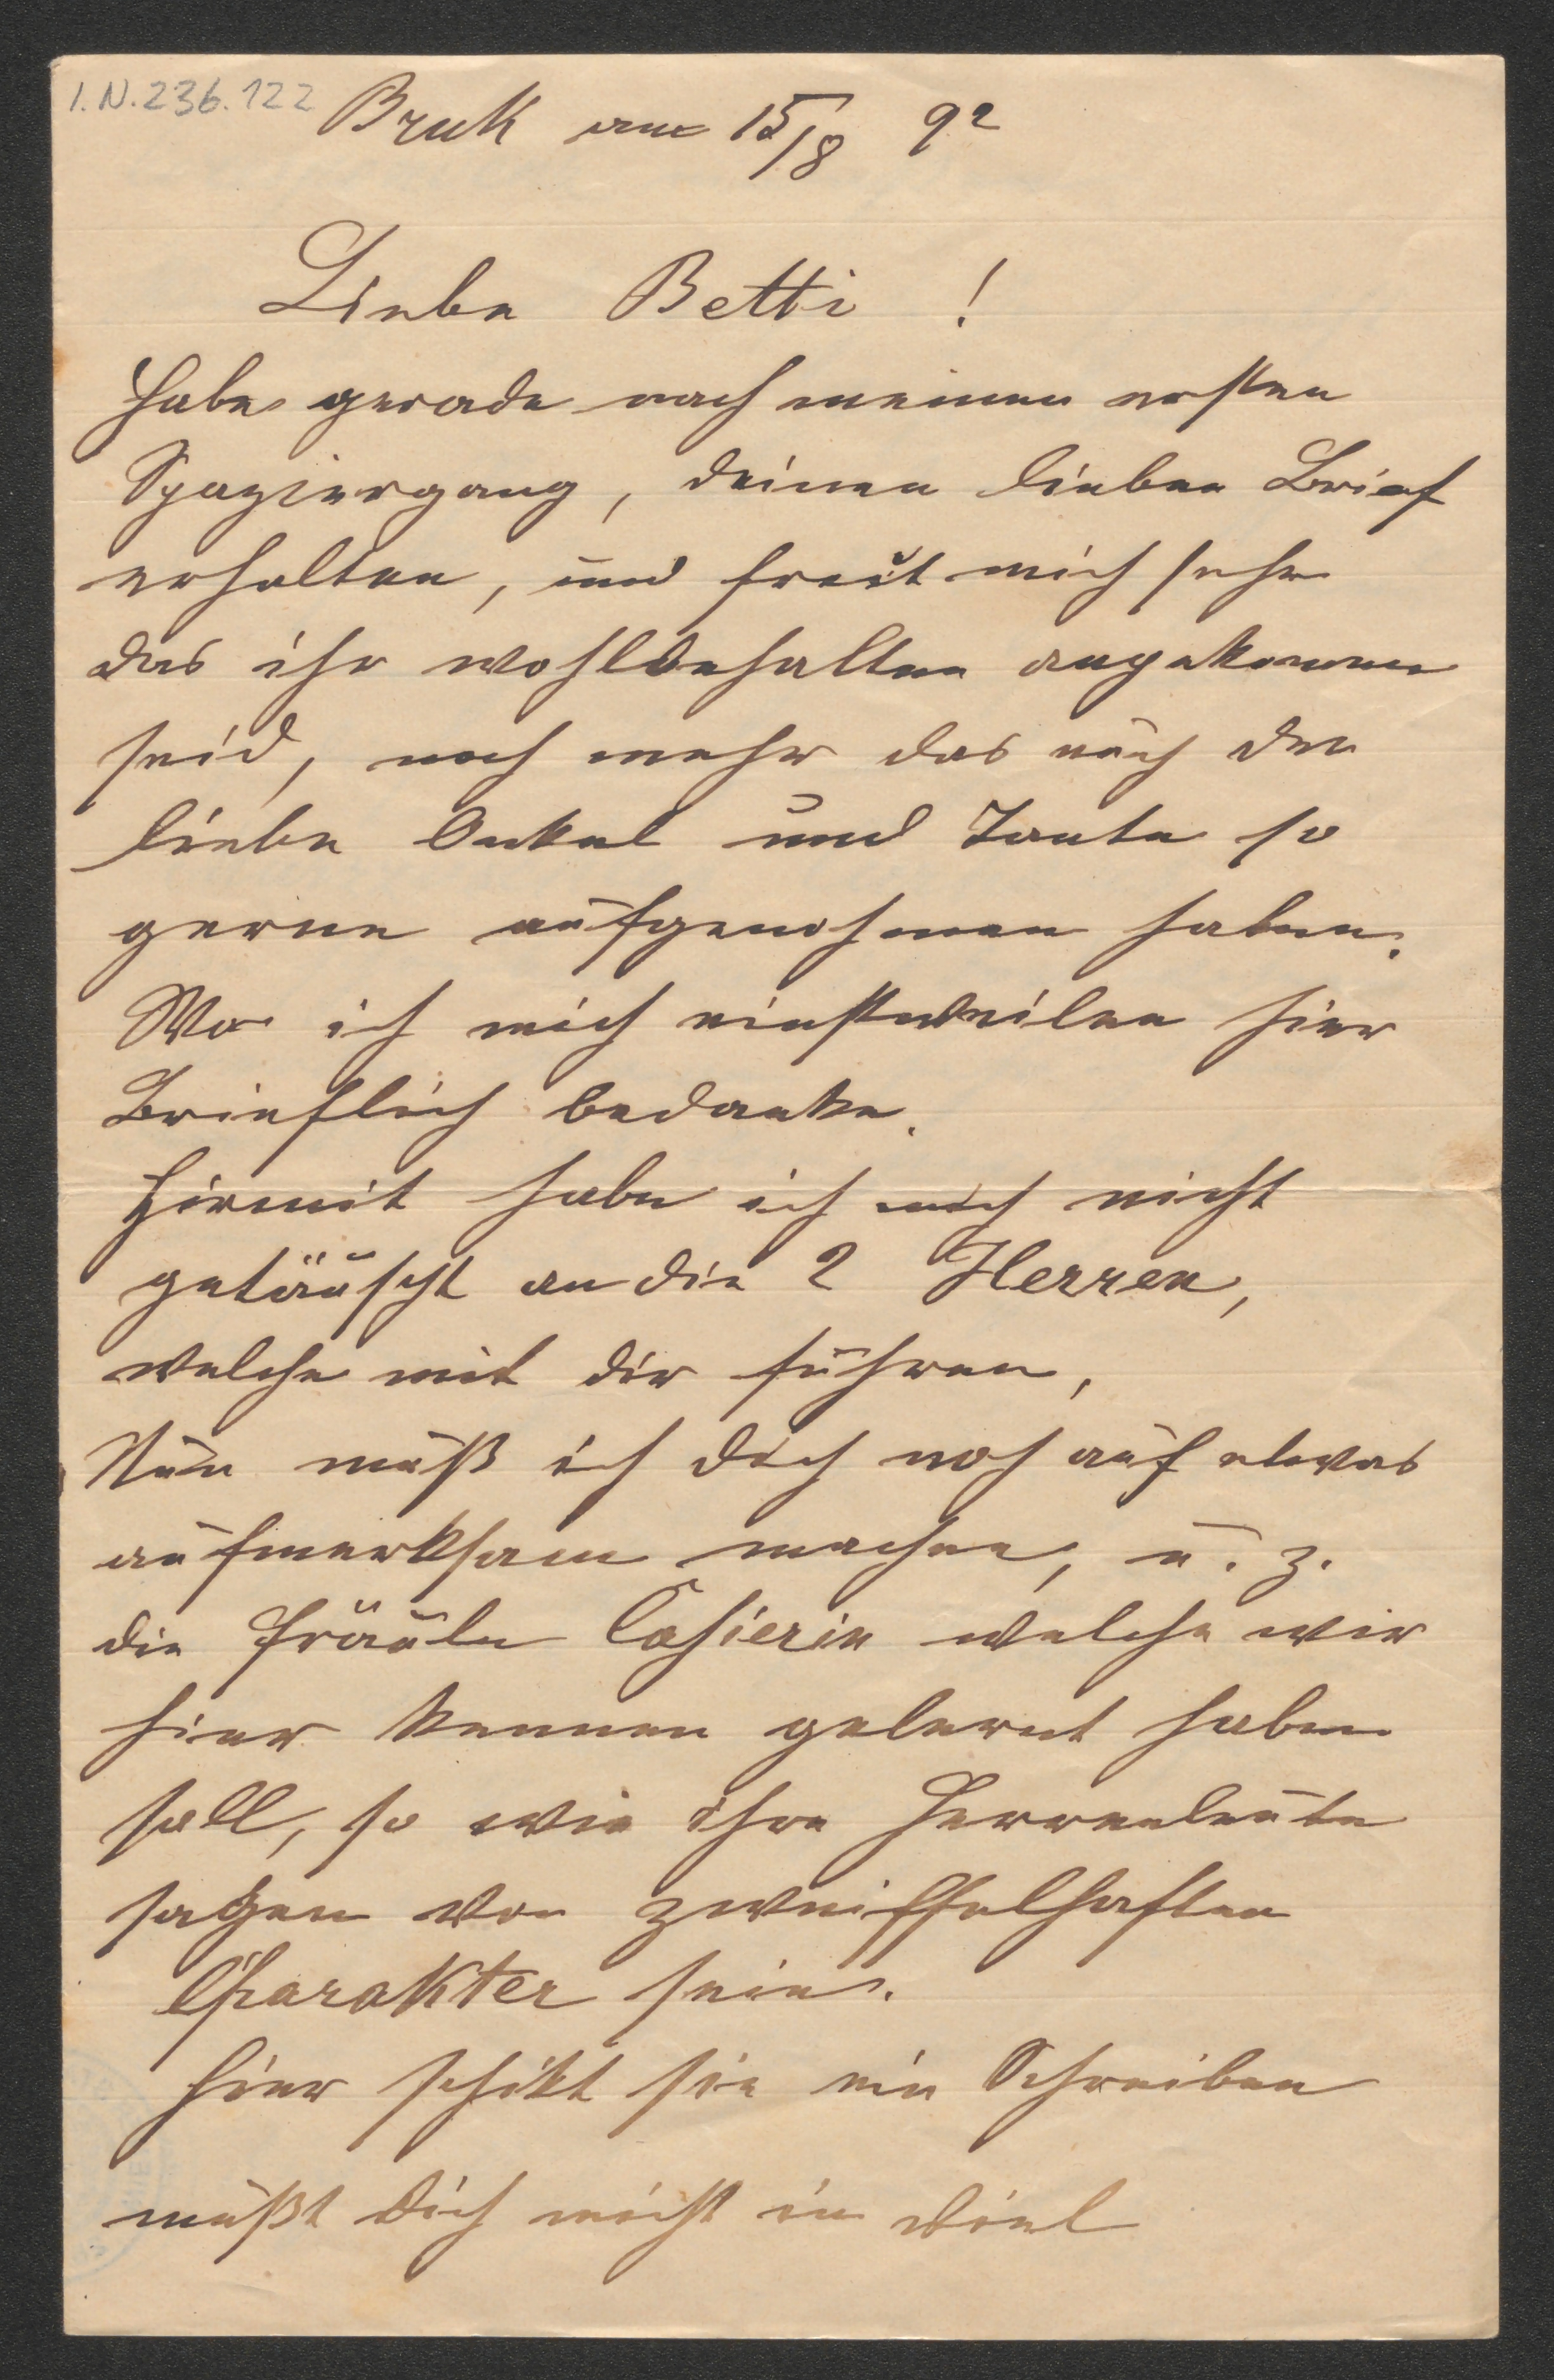 I.N.236.122
Bruk am 15/8 92
Liebe Betti !
Habe gerade nach meinen ersten
Spaziergang, deinen lieben Brief
erhalten, und freut mich sehr
das ihr wohlbehalten angekommen
seid, noch mehr das euch der
liebe Onkel und Tante so
gerne aufgenohmen haben.
Wo ich mich einstweilen hier
Brieflich bedanke.
Hirmit habe ich mich nicht
getäuscht an die 2 Herren,
welche mit dir führen,
Nun muß ich dich noch auf etwas
aufmerksam machen, u. z.
die Fräuln Casierin welche wir
hier kennen gelernt haben
soll, so wie ihre Herrenleute
sagen von zweiffelhaften
Charakter sein.
Hier schikt sie ein Schreiben
mußt dich nicht in viel